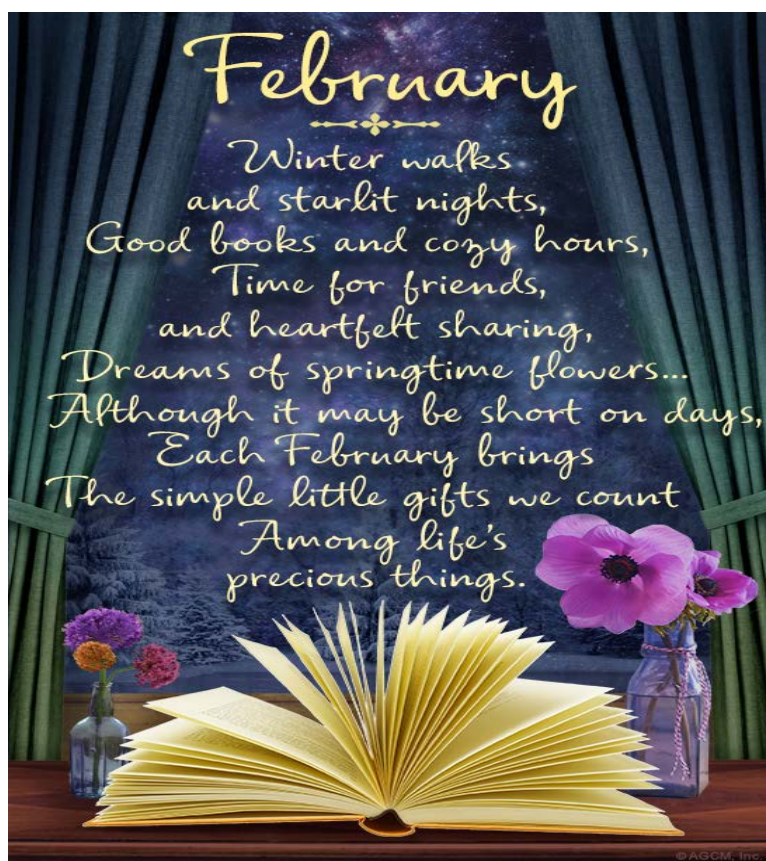 February
Winter walks
and starlit nights,
Good books and cozy hours,
Time for friends,
and heartfelt sharing,
Dreams of springtime flowers...
Although it may be short on days,
Each February brings
The simple little gifts we count
Among life's
precious things.
©AGCM, Inc.